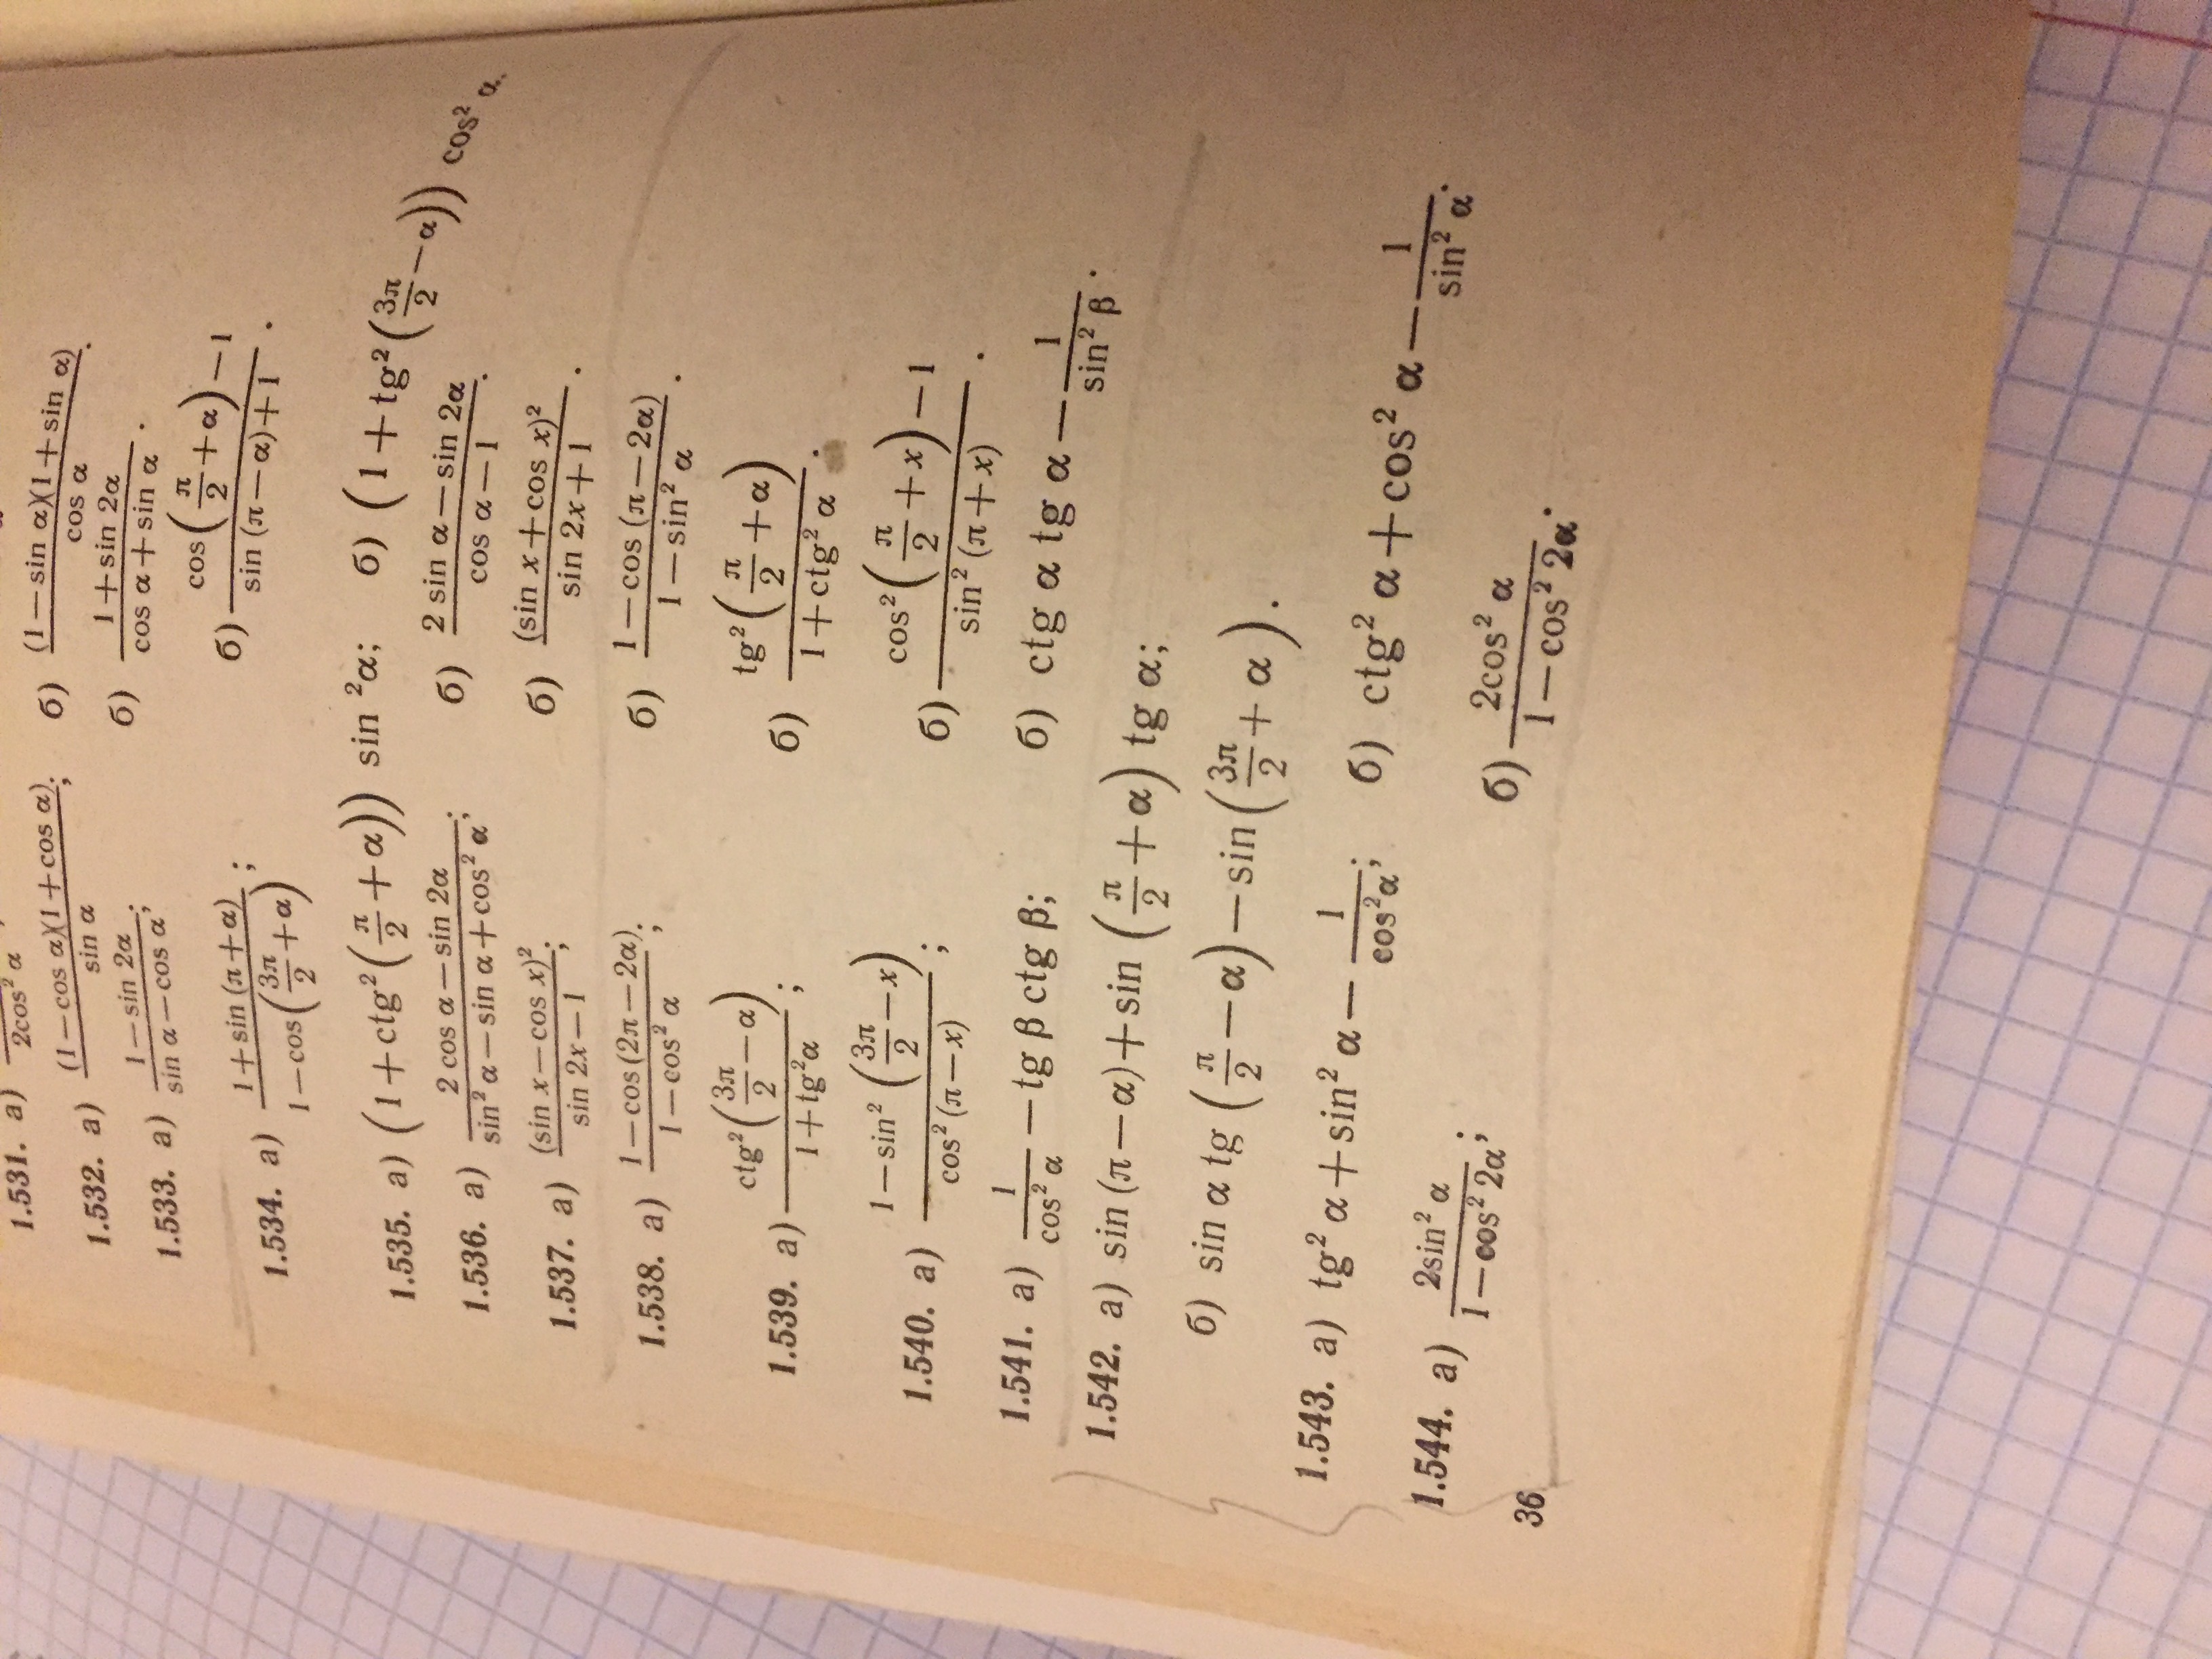 1.531. а) 2cos² α
1.532. а) (1−cos α)(1+cos α)/sin α; б) (1−sin α)(1+sin α)/cos α.
1.533. а) (1−sin 2α)/(sin α−cos α); б) (1+sin 2α)/(cos α+sin α).
1.534. а) (1+sin (π+α))/(1−cos(3π/2+α)); б) (cos(π/2+α)−1)/(sin (π−α)+1).
1.535. а) (1+ctg²(π/2+α)) sin ²α; б) (1+tg²(3π/2−α)) cos² α.
1.536. а) (2 cos α−sin 2α)/(sin² α−sin α+cos² α); б) (2 sin α−sin 2α)/(cos α−1).
1.537. а) (sin x−cos x)²/(sin 2x−1); б) (sin x+cos x)²/(sin 2x+1).
1.538. а) (1−cos (2π−2α))/(1−cos² α); б) (1−cos (π−2α))/(1−sin² α).
1.539. а) ctg²(3π/2−α)/(1+tg²α); б) tg²(π/2+α)/(1+ctg² α).
1.540. а) (1−sin² (3π/2−x))/(cos² (π−x)); б) (cos² (π/2+x)−1)/(sin² (π+x)).
1.541. а) 1/cos² α −tg β ctg β; б) ctg α tg α−1/sin² β.
1.542. а) sin (π−α)+sin (π/2+α) tg α;
б) sin α tg (π/2−α)−sin(3π/2+α).
1.543. а) tg² α+sin² α−1/cos²α; б) ctg² α+cos² α−1/sin² α.
1.544. а) 2sin² α/(1−cos² 2α); б) 2cos² α/(1−cos² 2α).
36